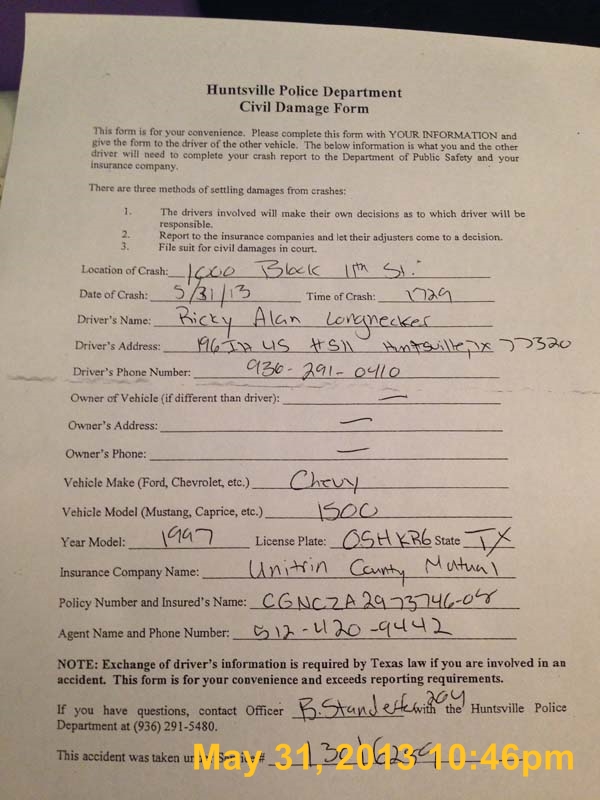 Huntsville Police Department
Civil Damage Form
This form is for your convenience. Please complete this form with YOUR INFORMATION and
give the form to the driver of the other vehicle. The below information is what you and the other
driver will need to complete your crash report to the Department of Public Safety and your
insurance company.
There are three methods of settling damages from crashes:
1. The drivers involved will make their own decisions as to which driver will be
responsible.
2. Report to the insurance companies and let their adjusters come to a decision.
3. File suit for civil damages in court.
Location of Crash: 1000 Block 11th St.
Date of Crash: 5/31/13 Time of Crash: 1729
Driver's Name: Ricky Alan Longnecker
Driver's Address: US Huntsville, TX 77320
Driver's Phone Number: 936-291-0410
Owner of Vehicle (if different than driver): —
Owner's Address: —
Owner's Phone: —
Vehicle Make (Ford, Chevrolet, etc.) Chevy
Vehicle Model (Mustang, Caprice, etc.) 1500
Year Model: 1997 License Plate: OSHKR6 State TX
Insurance Company Name: Unitrin County Mutual
Policy Number and Insured's Name: CGNCZA2973746-08
Agent Name and Phone Number: 512-420-9442
NOTE: Exchange of driver's information is required by Texas law if you are involved in an
accident. This form is for your convenience and exceeds reporting requirements.
If you have questions, contact Officer B. with the Huntsville Police
Department at (936) 291-5480.
This accident was taken under Service #
May 31, 2013 10:46pm